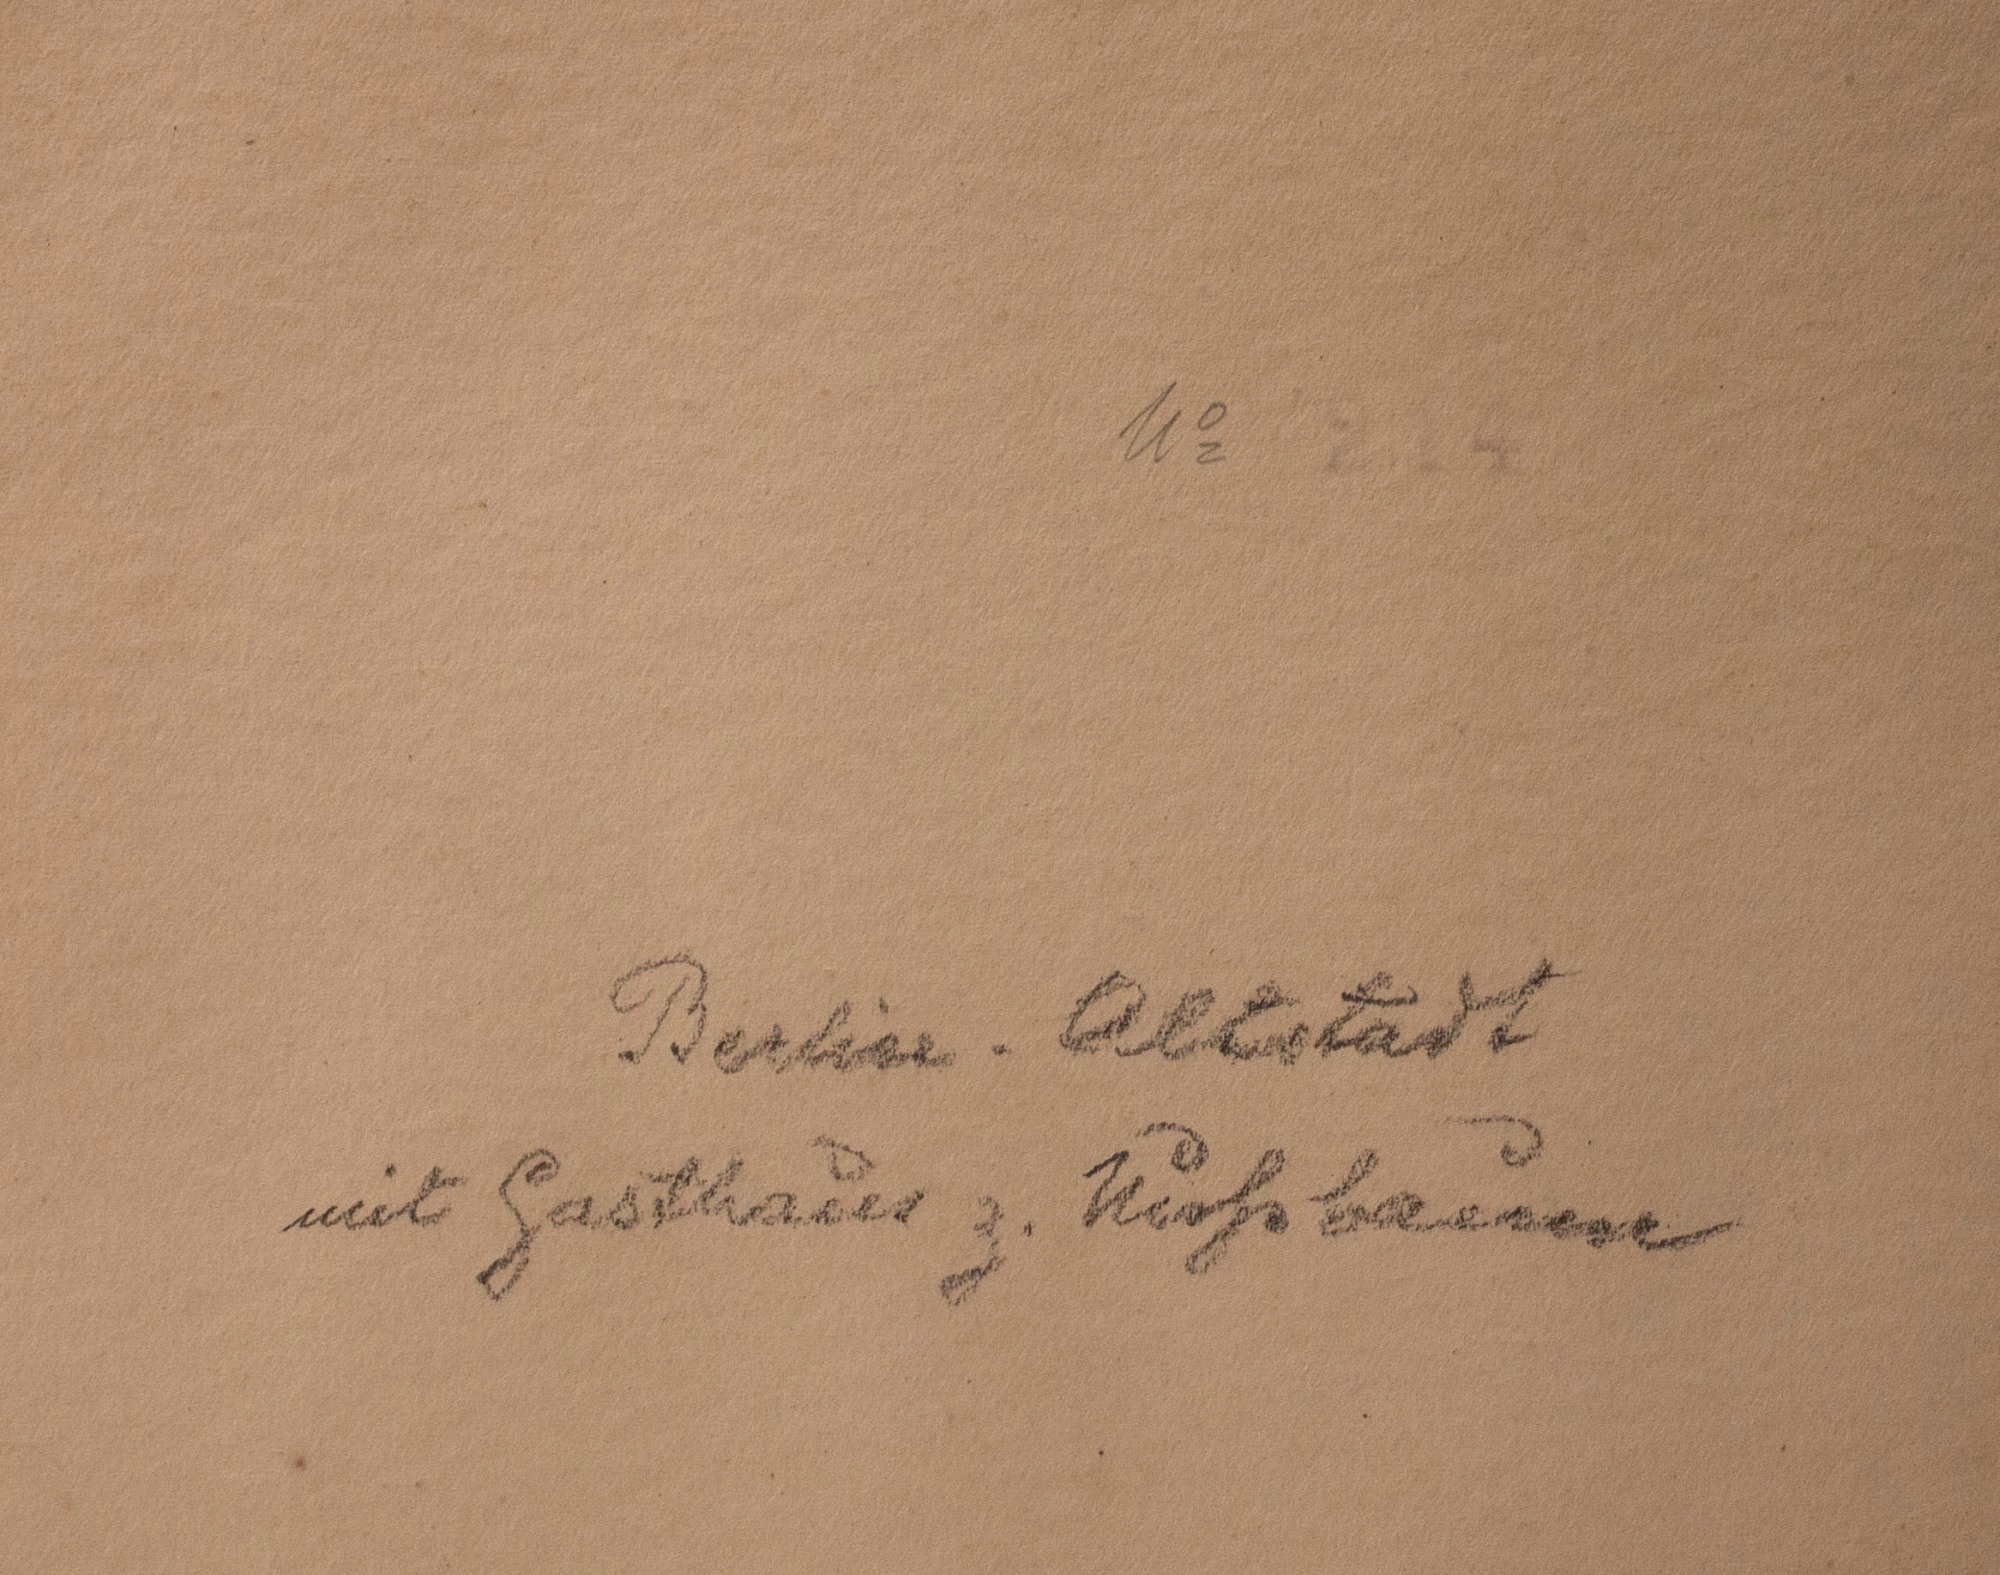 No
Berlin - Altstadt
mit Gasthaus z. Nußbaum